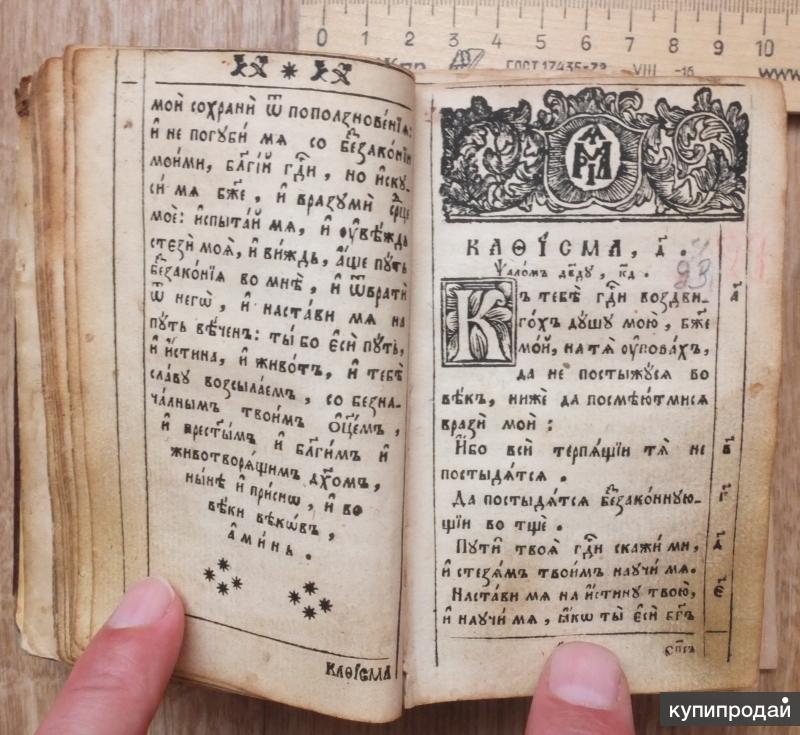 0 1 2 3 4 5 6 7 8 9 10
ГОСТ 17435-72 VIII -16 www
мой сохрани ѿ поползновенїѧ:
и҆ не погꙋби мѧ со беззаконїи
моими, бл҃гїй гдⷭ҇и, но и҆скꙋ-
си мѧ бж҃е, и҆ вразꙋми срⷣце
мое: и҆спытай мѧ, и҆ оу҆вѣждь
стези моѧ, и҆ виждь, а҆ще пꙋть
беззаконїѧ во мнѣ, и҆ ѿврати
ѿ негѡ, и҆ настави мѧ на
пꙋть вѣченъ: ты бо є҆си пꙋть,
и҆ и҆стина, и҆ животъ, и҆ тебѣ
славꙋ возсылаемъ, со безна-
чалнымъ твоимъ ѻ҆ц҃емъ,
и҆ прест҃ымъ и҆ бл҃гимъ и҆
животворѧщимъ дх҃омъ,
нынѣ и҆ приснѡ, и҆ во
вѣки вѣкѡвъ,
а҆минь.
КАѲІСМА
КАѲІСМА, д҃.
Ѱаломъ дв҃дꙋ, к҃д.
23
Къ тебѣ гдⷭ҇и воздви- а҃
гохъ дꙋшꙋ мою, бж҃е
мой, на тѧ оу҆повахъ,
да не постыжꙋсѧ во
вѣкъ, ниже да посмѣютмисѧ
врази мои:
И҆бо вси терпѧщїи тѧ не в҃
постыдѧтсѧ.
Да постыдѧтсѧ беззаконнꙋю- г҃
щїи во тще.
Пꙋти твоѧ гдⷭ҇и скажи ми, д҃
и҆ стезѧмъ твоимъ наꙋчи мѧ.
Настави мѧ на и҆стинꙋ твою, є҃
и҆ наꙋчи мѧ, ꙗ҆кѡ ты є҆си бг҃ъ
сп҃съ
купипродай